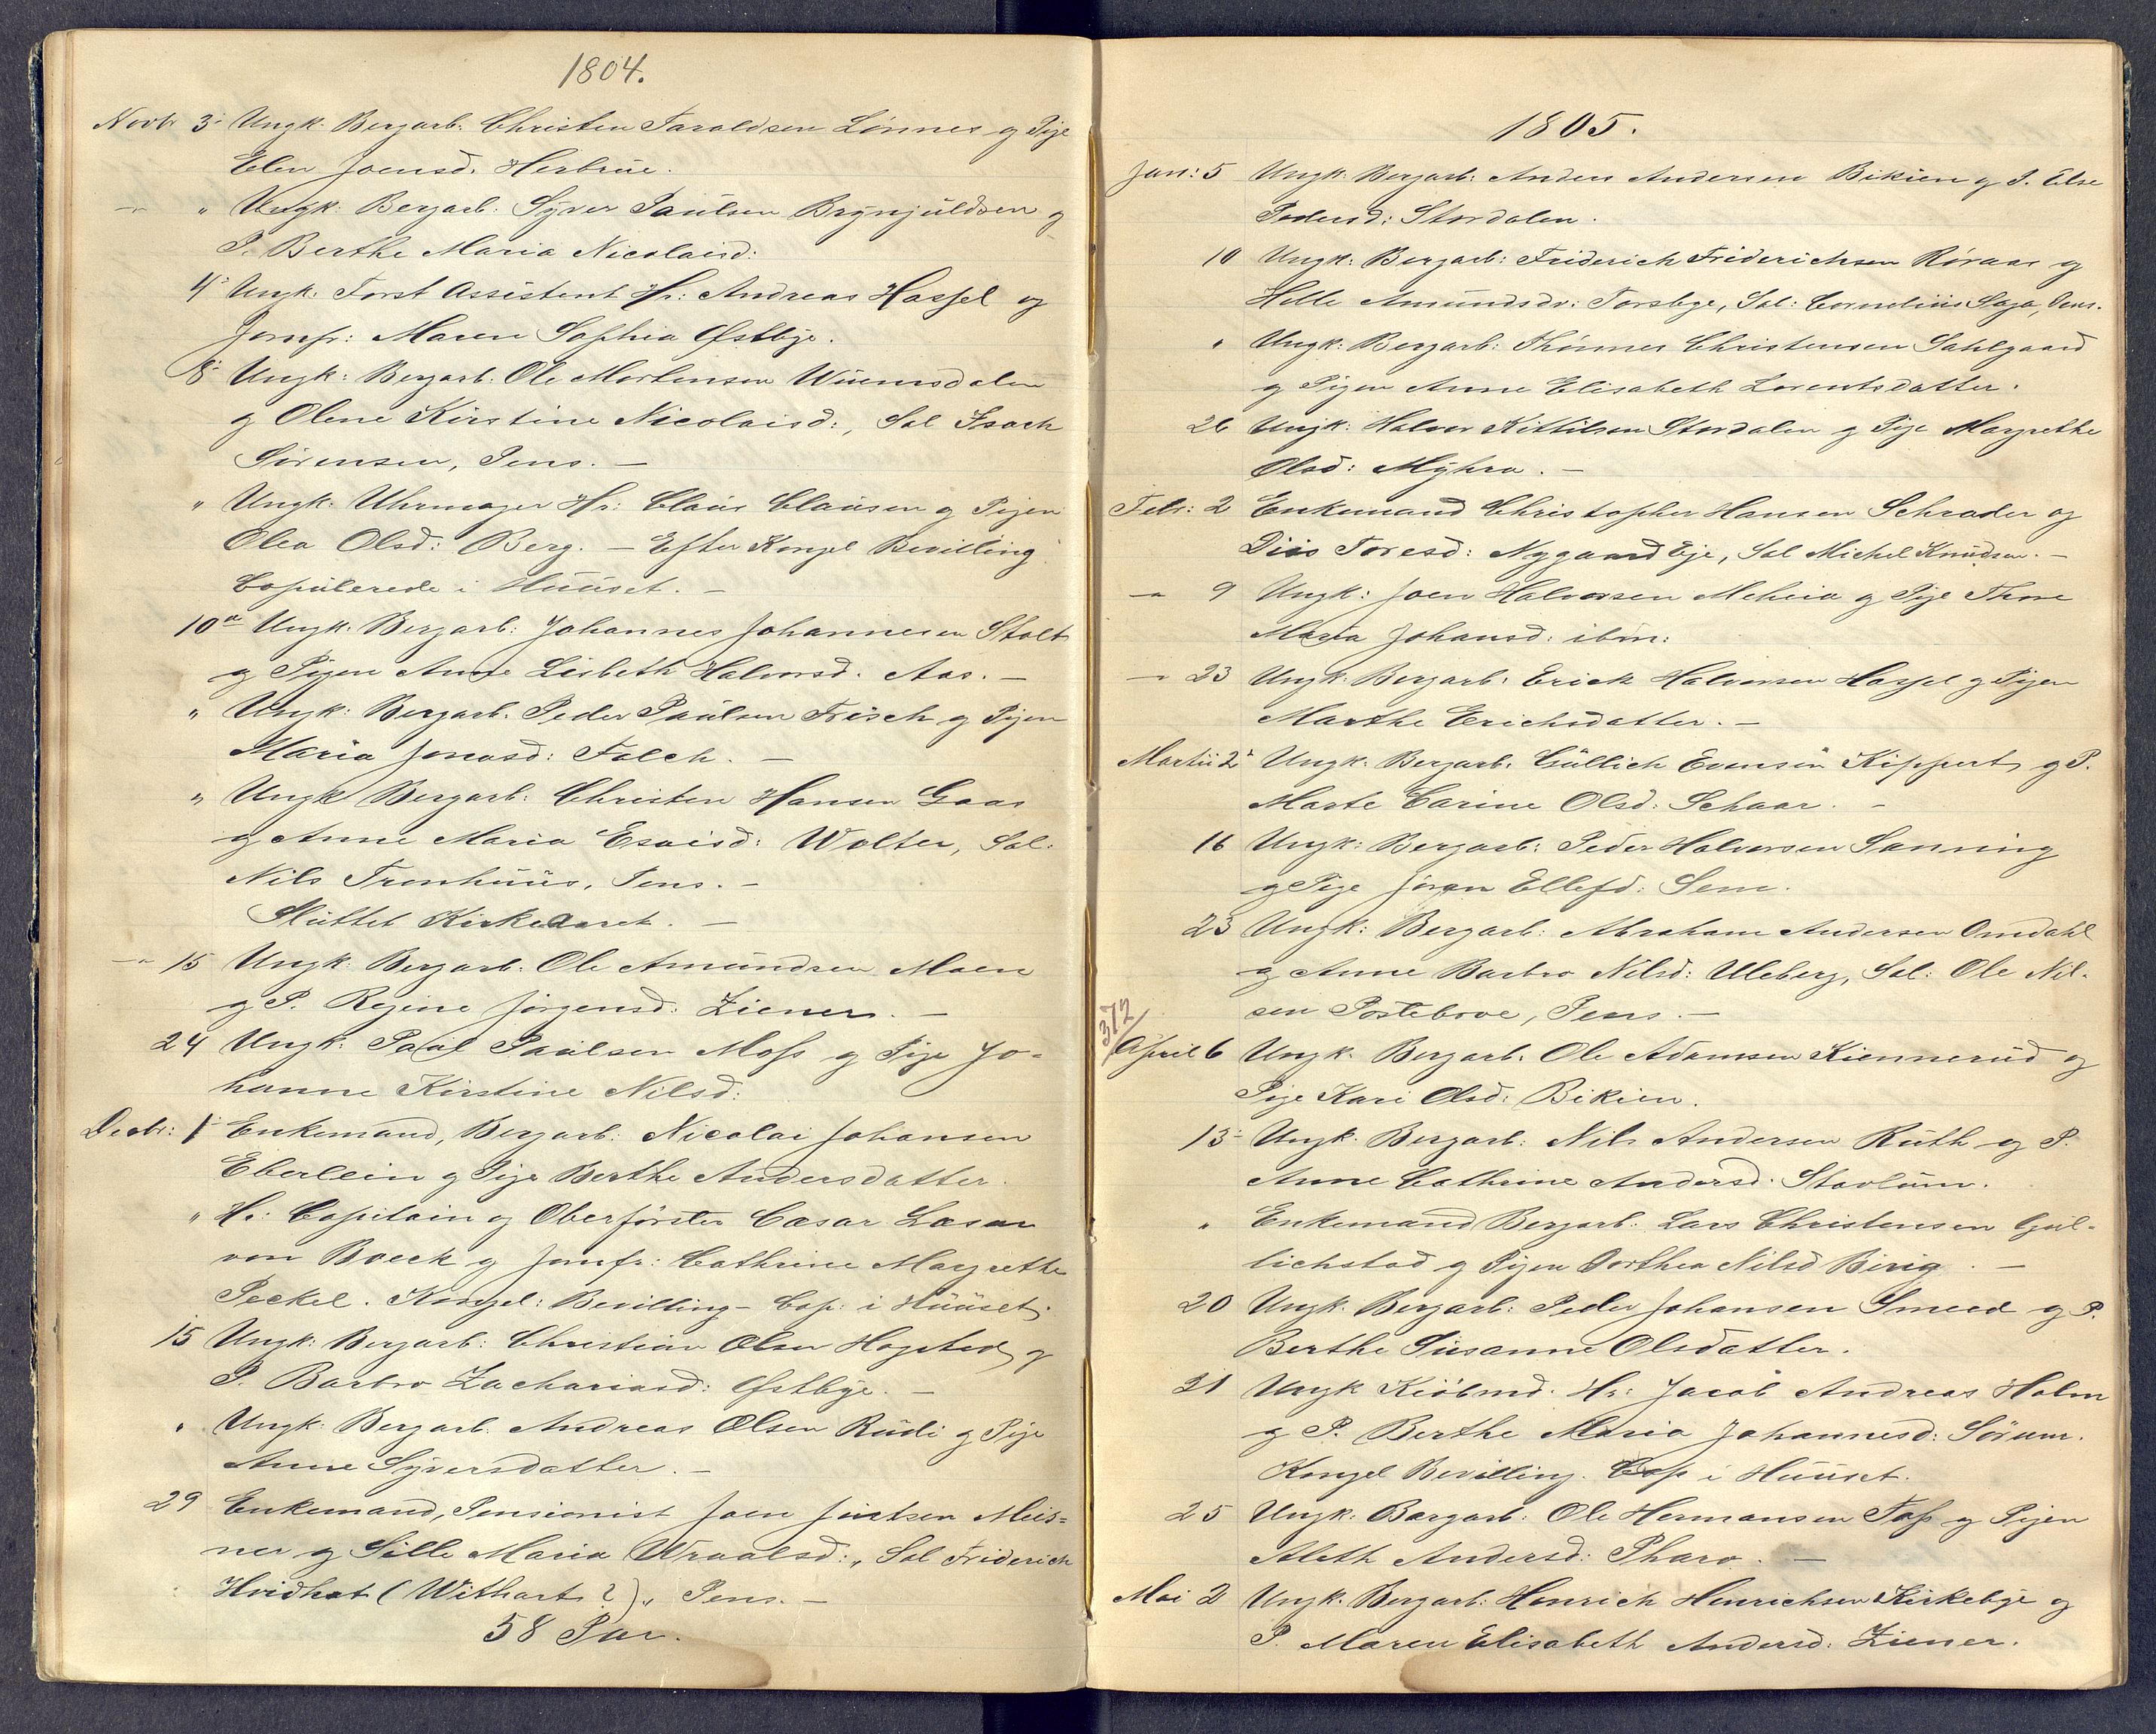 1804.
Novbr 3' Ungk. Bergarb. Christen Taraldsen Lønnes og Pige
Elen Joensd. Herbrüe.
—"— " Ungk. Bergarb. Syver Paülsen Brynjüldsen og
P. Berthe Maria Nicolaisd:
4' Ungk. Forst Assistent Hr: Andreas Hassel og
Jomfr: Maren Sophia Østbye.
8' Ungk: Bergarb. Ole Mortensen Wüemsdalen
og Olene Kirstine Nicolaisd:, Sal Isach
Sørensen, Pens. —
" Ungk. Uhrmager Hr: Claüs Claüsen og Pigen
Olea Olsd: Berg. — Efter Kongel Bevilling
Copülerede i Hüüset. —
10" Ungk. Bergarb: Johannes Johannesen Stolt
og Pigen Anne Lisbeth Halvorsd. Aas. —
" Ungk: Bergarb. Peder Paülsen Frisch og Pigen
Maria Jonasd: Falch. —
" Ungk Bergarb: Christen Hansen Gaas
og Anne Maria Esaisd: Wolter, Sal:
Nils Tronhüüs, Pens. —
Slüttet Kirkeaaret. —
—"— 15 Ungk. Bergarb. Ole Amündsen Moen
og P. Regine Jørgensd: Ziener. —
24 Ungk: Paül Paülsen Moss og Pige Jo-
hanne Kirstine Nilsd:
Decbr: 1' Enkemand, Bergarb: Nicolai Johansen
Eberlein og Pige Berthe Andersdatter.
" Hr: Capitain og Oberførster Cæsar Læsar
von Boeck og Jomfr: Cathrine Margrethe
Peckel. Kongel: Bevilling — Cop: i Hüüset.
15 Ungk: Bergarb: Christian Olsen Hogstad og
P. Barbro Zachariasd: Østbye. —
" Ungk. Bergarb. Andreas Olsen Rüdi og Pige
Anne Syversdatter. —
29 Enkemand, Pensionist Joen Jüstsen Meis=
ner og Sille Maria Wraalsd:, Sal Friderich
Hvidhat (Withart ?)., Pens. —
58 Par.
1805.
Jan: 5 Ungk: Bergarb: Anders Andersen Bikien og P. Else
Pedersd: Stordalen.
10 Ungk: Bergarb: Friderich Friderichsen Røraas og
Helle Amündsdr: Torsbye, Sal: Cornelius Saga, Pens.
" Ungk: Bergarb: Thønnes Christensen Sahlgaard
og Pigen Anne Elisabeth Lorentsdatter.
26 Ungk: Halvor Kittilsen Stordalen og Pige Margrethe
Olsd: Myhra. —
Febr: 2 Enkemand Christopher Hansen Schrader og
Diis Toresd: Nygaard Eje, Sal Michel Knüdsen. —
—"— 9 Ungk: Joen Halvorsen Meheia og Pige Thore
Maria Johansd: ibm:
—"— 23 Ungk. Bergarb. Erick Halvorsen Hassel og Pigen
Marthe Erichsdatter. —
Martii 2' Ungk. Bergarb. Güllich Evensøn Kippert og P.
Marte Carine Olsd: Schaar. —
16 Ungk: Bergarb: Peder Halvorsen Sanning
og Pige Jøran Ellefsd: Sem.
23 Ungk: Bergarb: Abraham Andersen Omdahl
og Anne Barbro Nilsd: Uleberg, Sal: Ole Nil-
sen Postebroe, Pens. —
372
April 6 Ungk. Bergarb. Ole Adamsen Kiennerüd og
Pige Kari Olsd: Bikien.
13' Ungk. Bergarb: Nils Andersen Rüth og P.
Anne Cathrine Andersd: Stavlüm.
" Enkemand Bergarb: Lars Christensen Gül-
lichstad og Pigen Dorthea Nilsd Bing. —
20 Ungk. Bergarb: Peder Johansen Smeed og P.
Berthe Süsanne Olsdatter.
21 Ungk Kiøbmd: Hr: Jacob Andreas Holm
og P. Berthe Maria Johannesd: Sørum.
Kongel Bevilling. Cop i Hüüset.
25 Ungk. Bergarb: Ole Hermansen Fass og Pigen
Aleth Andersd: Pharo. —
Mai 2 Ungk. Bergarb: Henrich Henrichsen Kirkebye og
P. Maren Elisabeth Andersd: Ziener.